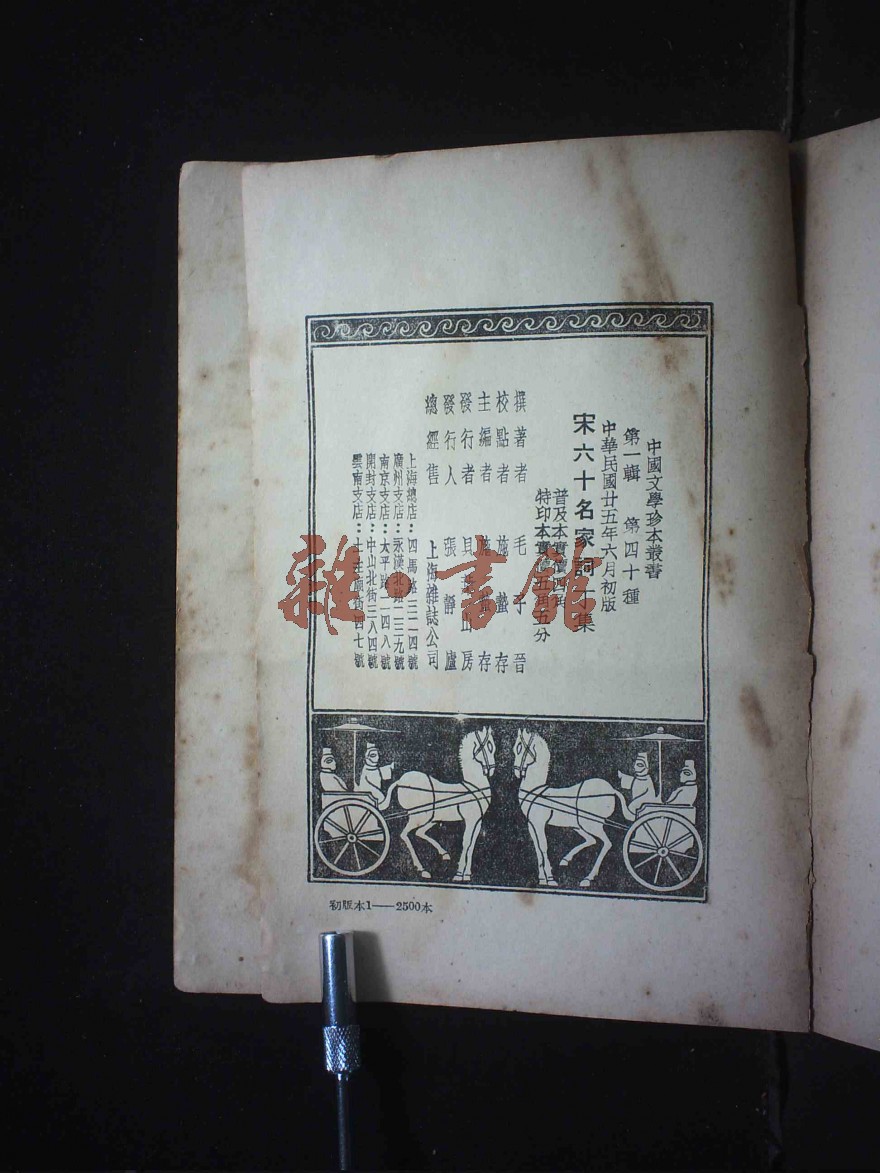 中國文學珍本叢書
第一輯 第四十種
中華民國廿五年六月初版
宋六十名家詞丁集
普及本實價四角
特印本實價五角五分
撰著者 毛子晉
校點者 施蟄存
主編者 施蟄存
發行者 貝葉山房
發行人 張靜廬
總經售 上海雜誌公司
上海總店：四馬路三二四號
廣州支店：永漢北路二三九號
南京支店：太平路二四八號
開封支店：中山北街三八四號
雲南支店：土主廟街四七號
初版本1——2500本
雜·書館